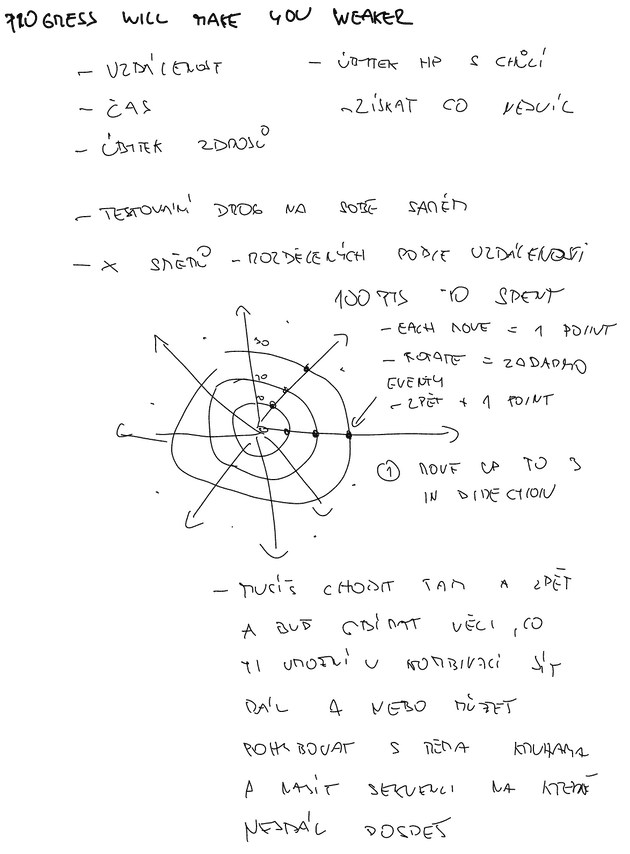 PROGRESS WILL MAKE YOU WEAKER
- VZDÁLENOST
- ČAS
- ÚBYTEK ZDROJŮ
- ÚBYTEK HP S CHŮZÍ
- ZÍSKAT CO NEJVÍC
- TESTOVÁNÍ DROG NA SOBĚ SAMÉM
- X SMĚRŮ - ROZDĚLENÝCH PODLE VZDÁLENOSTI
100 PTS TO SPENT
- EACH MOVE = 1 POINT
- ROTATE = ZADARMO
EVENTY
- ZPĚT + 1 POINT
30
20
10
1 MOVE UP TO 3
IN DIRECTION
- MUSÍŠ CHODIT TAM A ZPĚT
A BUĎ SBÍRAT VĚCI, CO
TI UMOŽNÍ V KOMBINACI JÍT
DÁL A NEBO MŮŽEŠ
POHYBOVAT S TĚMA KRUHAMA
A NAJÍT SEKVENCI NA KTERÉ
NEJDÁL DOJDEŠ